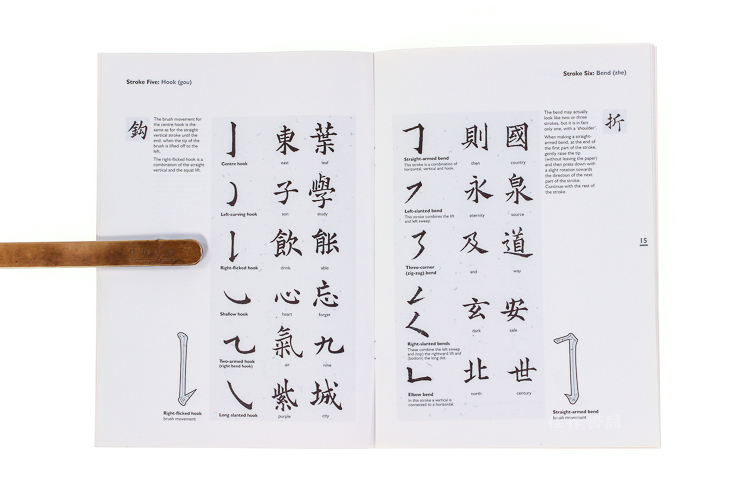 Stroke Five: Hook (gou)
鈎
The brush movement for
the centre hook is the
same as for the straight
vertical stroke until the
end, when the tip of the
brush is lifted off to the
left.
The right-flicked hook is a
combination of the straight
vertical and the equal lift.
東 葉
Centre hook east leaf
子 學
Left-curving hook son study
飲 能
Right-flicked hook drink able
心 忘
Shallow hook heart forget
氣 九
Two-armed hook
(right bend hook) air nine
紫 城
Long slanted hook purple city
Right-flicked hook
brush movement
Stroke Six: Bend (zhe)
折
The bend may actually
look like two or three
strokes, but it is in fact
only one, with a 'shoulder'.
When making a straight-
armed bend, at the end of
the first part of the stroke,
gently raise the tip
(without leaving the paper)
and then press down with
a slight rotation towards
the direction of the next
part of the stroke.
Continue with the rest of
the stroke.
則 國
Straight-armed bend then country
This stroke is a combination of
horizontal, vertical and hook.
永 泉
Left-slanted bend eternity source
This stroke combines the lift
and left sweep.
及 道
Three-corner
(zig-zag) bend and way
玄 安
dark safe
Right-slanted bends
These combine the left sweep
and (top) the rightward lift and
(bottom) the long dot.
北 世
Elbow bend north century
In this stroke a vertical is
connected to a horizontal.
Straight-armed bend
brush movement
15